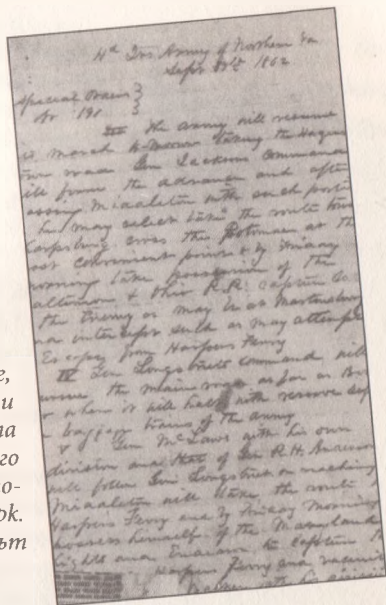 Hd Qrs Army of Northern Va
Sept 9th 1862
Special Orders }
No 191 }
III The Army will resume
its march to-morrow taking the Hagers
town road Gen Jacksons command
will form the advance and after
passing Middleton with such porti
he may select take the route tow
Sharpsburg cross the Potomac at the
most convenient point & by Friday
morning take possession of the
Baltimore & Ohio R.R. capture
the Enemy as may be at Martinsburg
and intercept such as may attempt
Escape from Harpers Ferry
IV Gen Longstreets command will
pursue the main road as far as Bo
where it will halt with reserve sup
baggage trains of the army
V Gen McLaws with his own
division and that of Gen R. H. Anderson
will follow Gen Longstreet on reaching
Middleton will take the route
Harpers Ferry and by Friday Morning
possess himself of the Maryland
Heights and Endeavor to capture
Harpers Ferry and vicinity
е,
и
ла
го
о-
ок.
ът